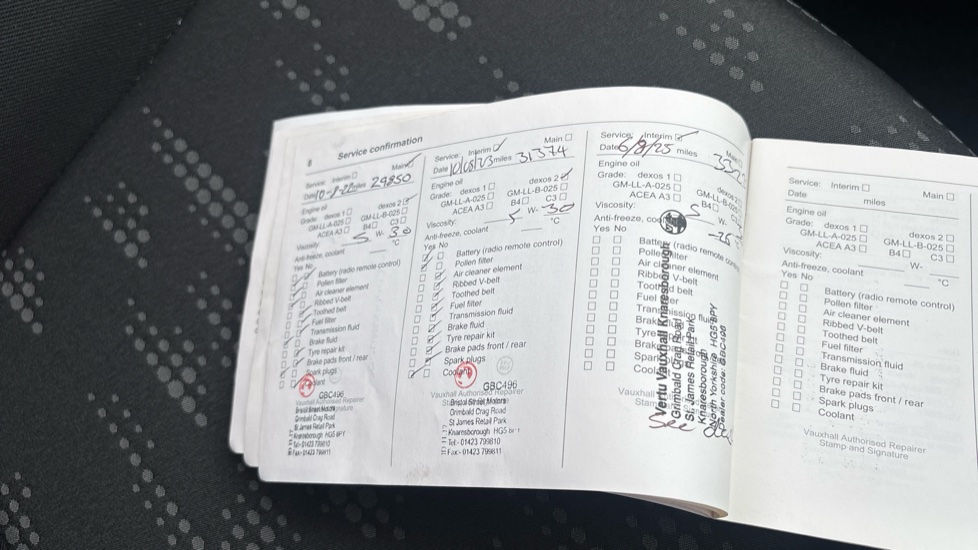 8 Service confirmation
Service: Interim Main
Date 10-8-22 miles 29850
Engine oil
Grade: dexos 1 dexos 2
GM-LL-A-025 GM-LL-B-025
ACEA A3 B4 C3
Viscosity: 5 W- 30
Anti-freeze, coolant °C
Yes No
Battery (radio remote control)
Pollen filter
Air cleaner element
Ribbed V-belt
Toothed belt
Fuel filter
Transmission fluid
Brake fluid
Tyre repair kit
Brake pads front / rear
Spark plugs
Coolant
GBC496
Vauxhall Authorised Repairer
Bristol Street Motors
Grimbald Crag Road
St James Retail Park
Knaresborough HG5 8PY
Tel:- 01423 799810
Fax:- 01423 799811
Service: Interim Main
Date 10/08/23 miles 31374
Engine oil
Grade: dexos 1 dexos 2
GM-LL-A-025 GM-LL-B-025
ACEA A3 B4 C3
Viscosity: 5 W- 30
Anti-freeze, coolant °C
Yes No
Battery (radio remote control)
Pollen filter
Air cleaner element
Ribbed V-belt
Toothed belt
Fuel filter
Transmission fluid
Brake fluid
Tyre repair kit
Brake pads front / rear
Spark plugs
Coolant
GBC496
Vauxhall Authorised Repairer
Bristol Street Motors
Grimbald Crag Road
St James Retail Park
Knaresborough HG5
Tel:- 01423 799810
Fax:- 01423 799811
Service: Interim Main
Date 6/8/25 miles
Engine oil
Grade: dexos 1
GM-LL-A-025
ACEA A3 B4
Viscosity: 5 W-
Anti-freeze, -25
Yes No
Battery (radio remote
Pollen filter
Air cleaner element
Ribbed V-belt
Toothed belt
Fuel filter
Transmission fluid
Brake
Tyre
Brake
Spark
Coolant
Vauxhall
Stamp
See
Vertu Vauxhall Knaresborough
Grimbald Crag Road
St. James Retail Park
Knaresborough
North Yorkshire HG5 8PY
Dealer code: GBC496
Service: Interim Main
Date miles
Engine oil
Grade: dexos 1 dexos 2
GM-LL-A-025 GM-LL-B-025
ACEA A3 B4 C3
Viscosity: W-
Anti-freeze, coolant °C
Yes No
Battery (radio remote control)
Pollen filter
Air cleaner element
Ribbed V-belt
Toothed belt
Fuel filter
Transmission fluid
Brake fluid
Tyre repair kit
Brake pads front / rear
Spark plugs
Coolant
Vauxhall Authorised Repairer
Stamp and Signature